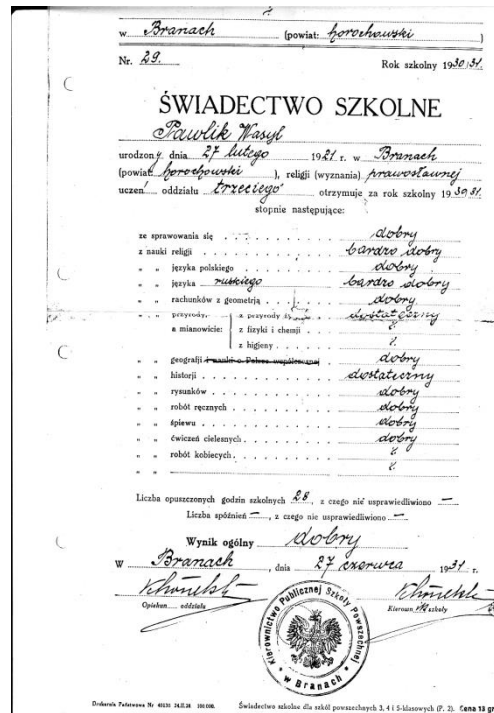 w Branach (powiat: horochowski )
Nr. 29. Rok szkolny 1930/31.
ŚWIADECTWO SZKOLNE
Pawlik Wasyl
urodzony dnia 27 lutego 1921 r. w Branach
(powiat horochowski ), religji (wyznania) prawosławnej
uczeń oddziału trzeciego otrzymuje za rok szkolny 1930/31.
stopnie następujące:
ze sprawowania się dobry
z nauki religji bardzo dobry
" " języka polskiego dobry
" " języka ruskiego bardzo dobry
" " rachunków z geometrją dobry
" " przyrody, z przyrody dostateczny
a mianowicie: z fizyki i chemji
z higjeny
" " geografji i nauki o Polsce współczesnej dobry
" " historji dostateczny
" " rysunków dobry
" " robót ręcznych dobry
" " śpiewu dobry
" " ćwiczeń cielesnych dobry
" " robót kobiecych
" "
Liczba opuszczonych godzin szkolnych 28, z czego nie usprawiedliwiono —
Liczba spóźnień —, z czego nie usprawiedliwiono —
Wynik ogólny dobry
W Branach, dnia 27 czerwca 1931 r.
Opiekun oddziału Kierown szkoły
Kierownictwo Publicznej Szkoły Powszechnej
w Branach
Drukarnia Państwowa Nr 100.000. Świadectwo szkolne dla szkół powszechnych 3, 4 i 5-klasowych (P. 2). Cena 13 gr